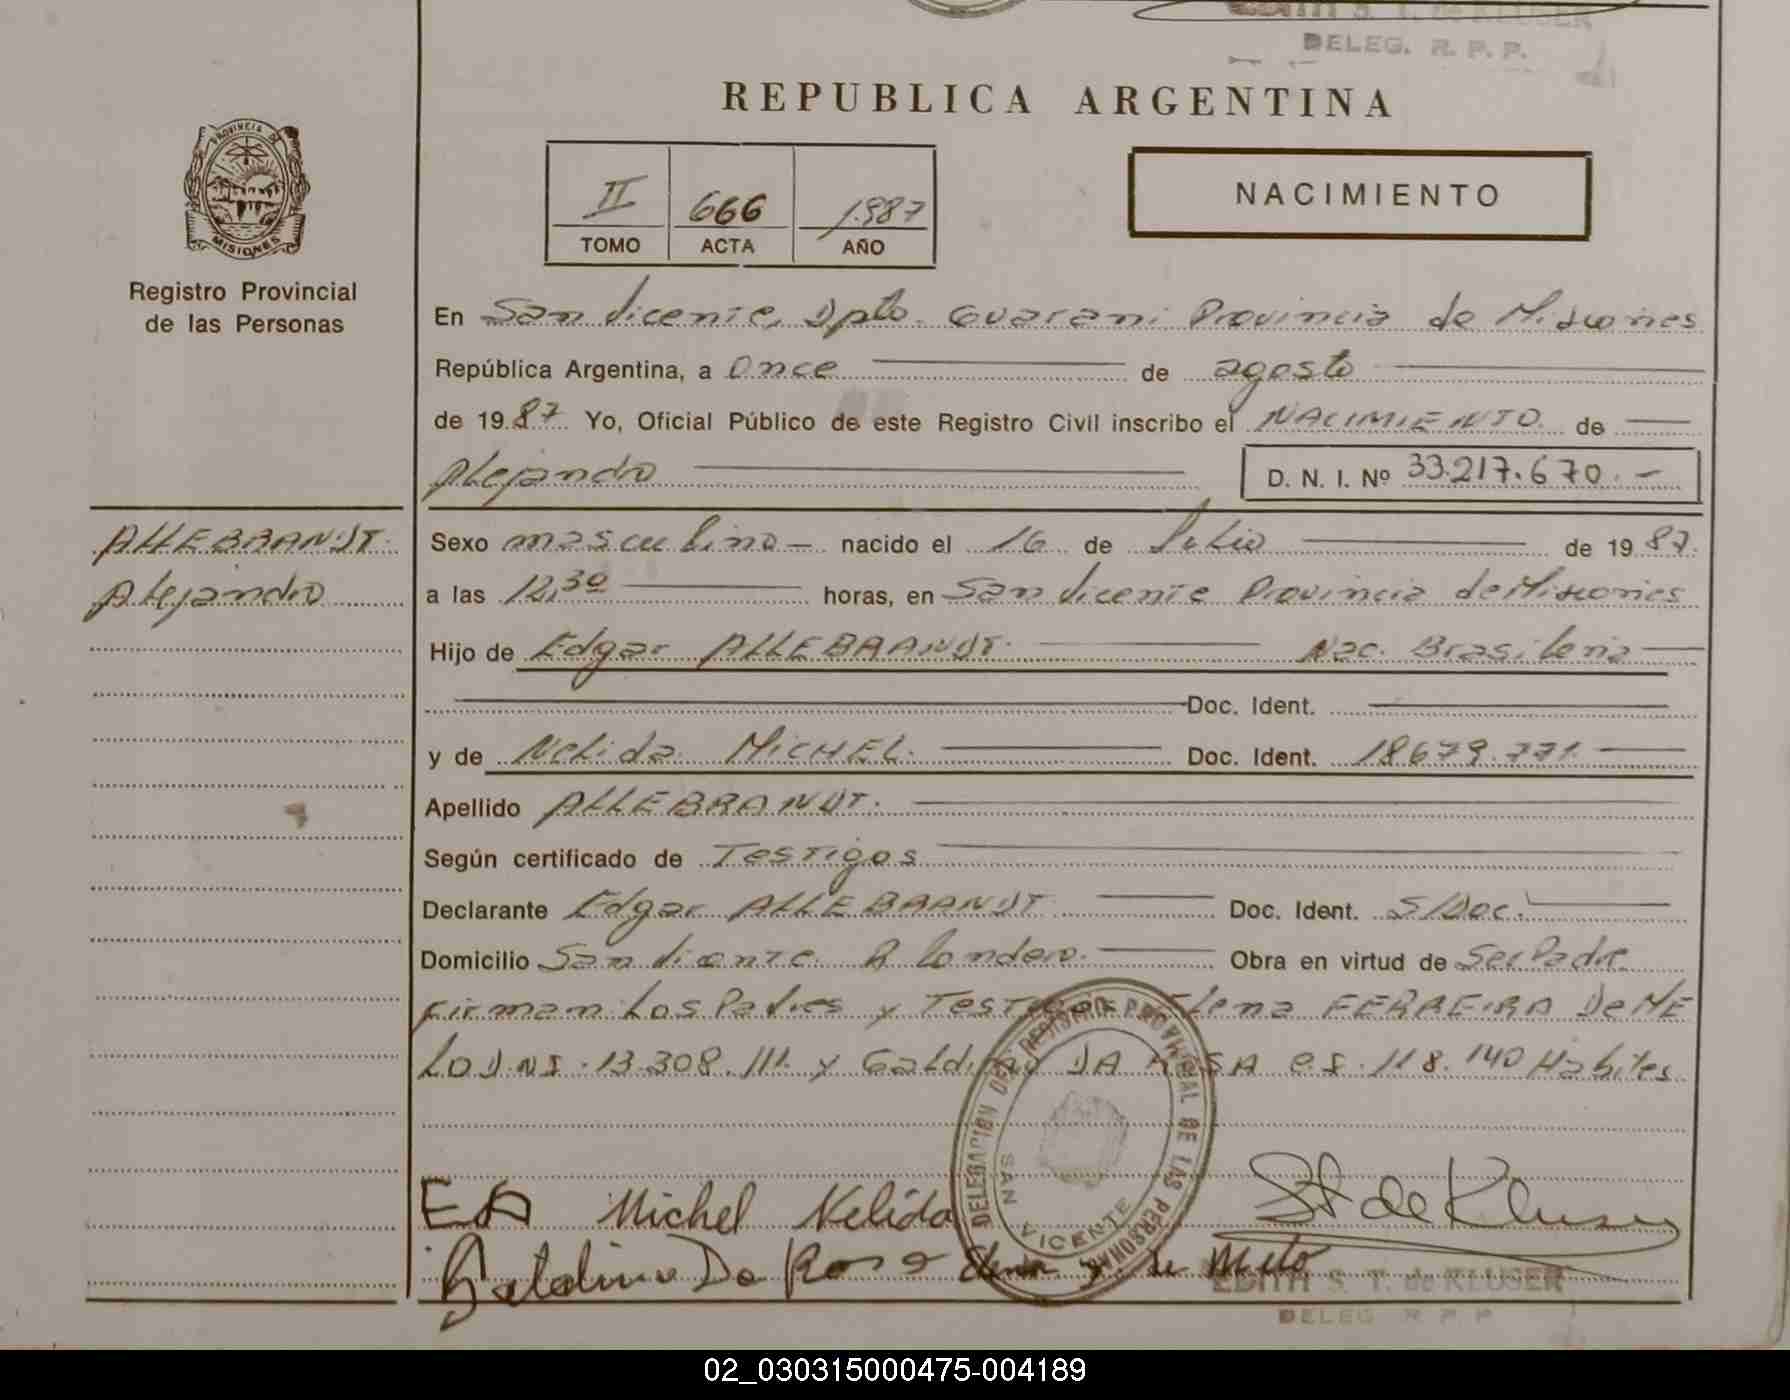 EDITH S. T. de KLUSER
DELEG. R. P. P.
REPUBLICA ARGENTINA
PROVINCIA DE
MISIONES
Registro Provincial
de las Personas
II 666 1.987
TOMO ACTA AÑO
NACIMIENTO
En San Vicente, Dpto. Guarani Provincia de Misiones
República Argentina, a once de agosto
de 1987 Yo, Oficial Público de este Registro Civil inscribo el NACIMIENTO de
Alejandro D. N. I. Nº 33.217.670.-
ALLEBRANDT.
Alejandro
Sexo masculino nacido el 16 de Julio de 1987.
a las 12,30 horas, en San Vicente Provincia de Misiones
Hijo de Edgar ALLEBRANDT. Nac. Brasileña
Doc. Ident.
y de Nelida MICHEL. Doc. Ident. 18.679.771.
Apellido ALLEBRANDT.
Según certificado de Testigos
Declarante Edgar ALLEBRANDT Doc. Ident. S/Doc.
Domicilio San Vicente Obra en virtud de Ser Padre
Firman Los Padres y Testigos Elena FERREIRA De ME
LO DNI. 13.308.111. y DA ROSA 118.140 Habiles
DELEGACION DEL REGISTRO PROVINCIAL DE LAS PERSONAS
SAN VICENTE
EA Michel Nelida St de Kluser
Da Rosa de Melo
EDITH S. T. de KLUSER
DELEG R P P
02_030315000475-004189